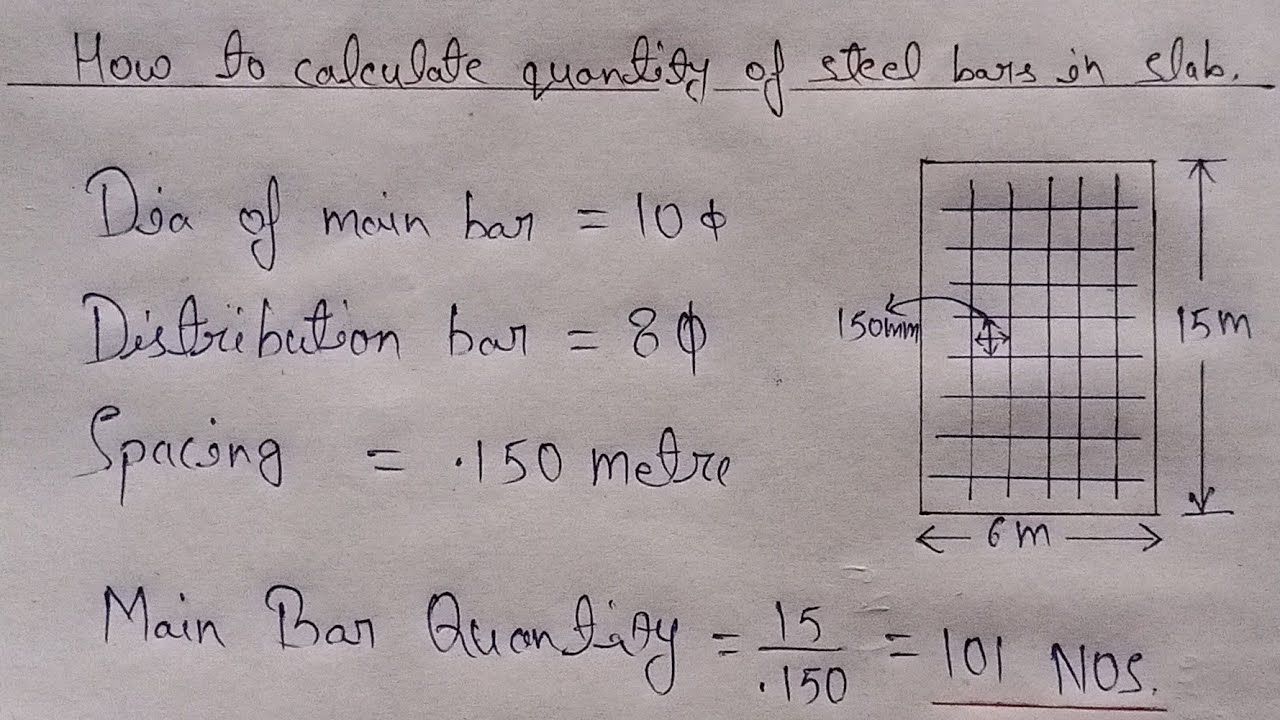 How to calculate quantity of steel bars in slab.
Dia of main bar = 10 ϕ
Distribution bar = 8 ϕ
Spacing = .150 metre
150mm
15m
6m
Main Bar Quantity = 15/.150 = 101 NOS.